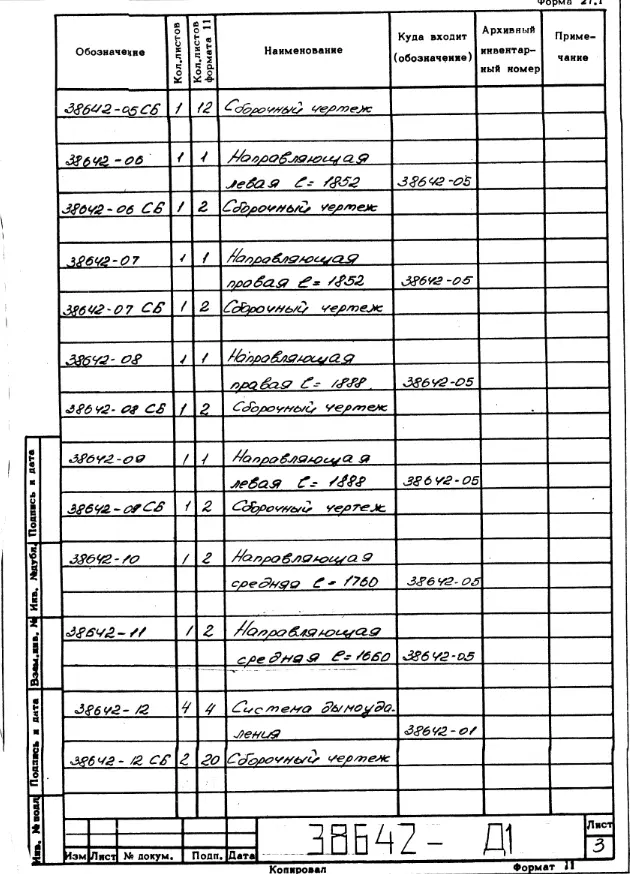 Форма 27.1
Обозначение Кол.листов Кол.листов формата 11 Наименование Куда входит (обозначение) Архивный инвентар-ный номер Приме-чание
38642-05СБ 1 12 Сборочный чертеж
38642-06 1 1 Направляющая
левая ℓ=1852 38642-05
38642-06 СБ 1 2 Сборочный чертеж
38642-07 1 1 Направляющая
правая ℓ=1852 38642-05
38642-07 СБ 1 2 Сборочный чертеж
38642-08 1 1 Направляющая
правая ℓ=1888 38642-05
38642-08 СБ 1 2 Сборочный чертеж
38642-09 1 1 Направляющая
левая ℓ=1888 38642-05
38642-09 СБ 1 2 Сборочный чертеж
38642-10 1 2 Направляющая
средняя ℓ=1760 38642-05
38642-11 1 2 Направляющая
средняя ℓ=1660 38642-05
38642-12 4 4 Система дымоуда-
ления 38642-01
38642-12 СБ 2 20 Сборочный чертеж
Подпись и дата
Инв. №дубл.
Взам.инв. №
Подпись и дата
Инв. №подл
38642- Д1
Лист
3
Изм Лист № докум. Подп. Дата
Копировал Формат 11